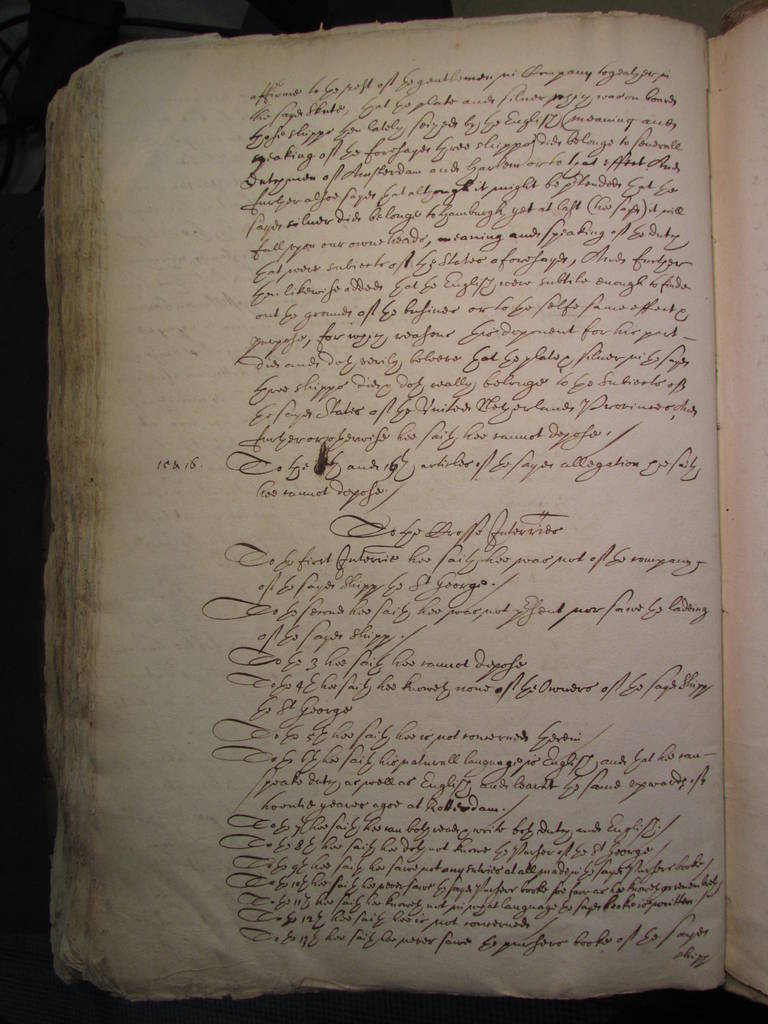 affirme to the rest of the gentlemen in Company togeather in
the sayd skute, that the plate and silver which was on board
those shipps then lately seized by the English (meaning and
speaking of the foresayd three shipps) did belonge to severall
Dutchmen of Amsterdam and Harlem or to that effect And
further alsoe sayd that although it might be pretended that the
sayd silver did belonge to Hamburgh yet at last (hee sayd) it will
fall upon our owne heads, meaning and speaking of the dutch
that were subiects of the States aforesayd, And further
then likewise added that the English were subtile enough to finde
out the grounds of the busines or to the selfe same effect &
purpose, for which reasons this deponent for his part
did and doth verily beleeve that the plate & silver in the sayd
three shipps did & doth really belonge to the Subiects of
the sayd States of the United Netherlands Provinces And
further or otherwise hee saith hee cannot depose./
15 & 16.
To the 15th and 16th articles of the sayd allegation hee saith
hee cannot depose./
To the Crosse Interries
To the first Interrie hee saith hee was not of the company
of the sayd shipp the St George./
To the second hee saith hee was not present nor sawe the ladeing
of the sayd shipp./
To the 3 hee saith hee cannot depose
To the 4th hee saith hee knoweth none of the Owners of the sayd shipp
the St George
To the 5th hee saith hee is not concerned herein
To the 6th hee saith his naturall language is English, and that he can
speake dutch as well as English and learnt the same upwards of
twentie yeares agoe at Rotterdam./
To the 7th hee saith hee can both read & write both dutch and English./
To the 8th hee saith hee doth not knowe the Purser of the St George
To the 9th hee saith hee sawe not any entries at all made in the sayd Pursers booke/
To the 10th hee saith hee never sawe the sayd Pursers booke soe farr as hee knoweth or remembreth
To the 11th hee saith hee knoweth not in what language the sayd booke is written
To the 12th hee saith hee is not concerned
To the 13th hee saith hee never sawe the pursers booke of the sayd
shipp